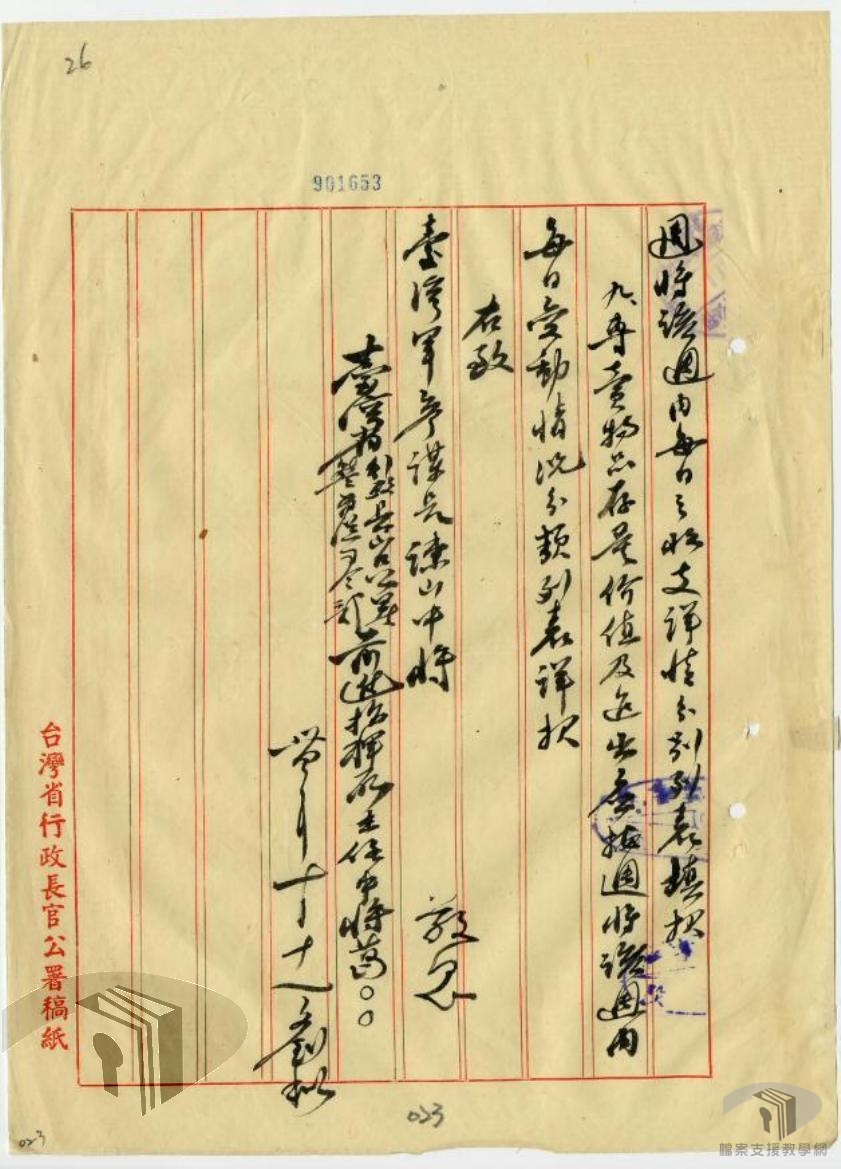 26
901653
週將該週内每日之收支詳情分別列表填报
九、專賣物品存量價值及進出應按週將該週内
每日變動情况分類列表詳报
右致
臺灣軍參謀長諫山中將
臺灣省行政長官公署
警備總司令部
前進指揮所主任中將葛○○
敬
十月十
台灣省行政長官公署稿紙
023
023
檔案支援教學網